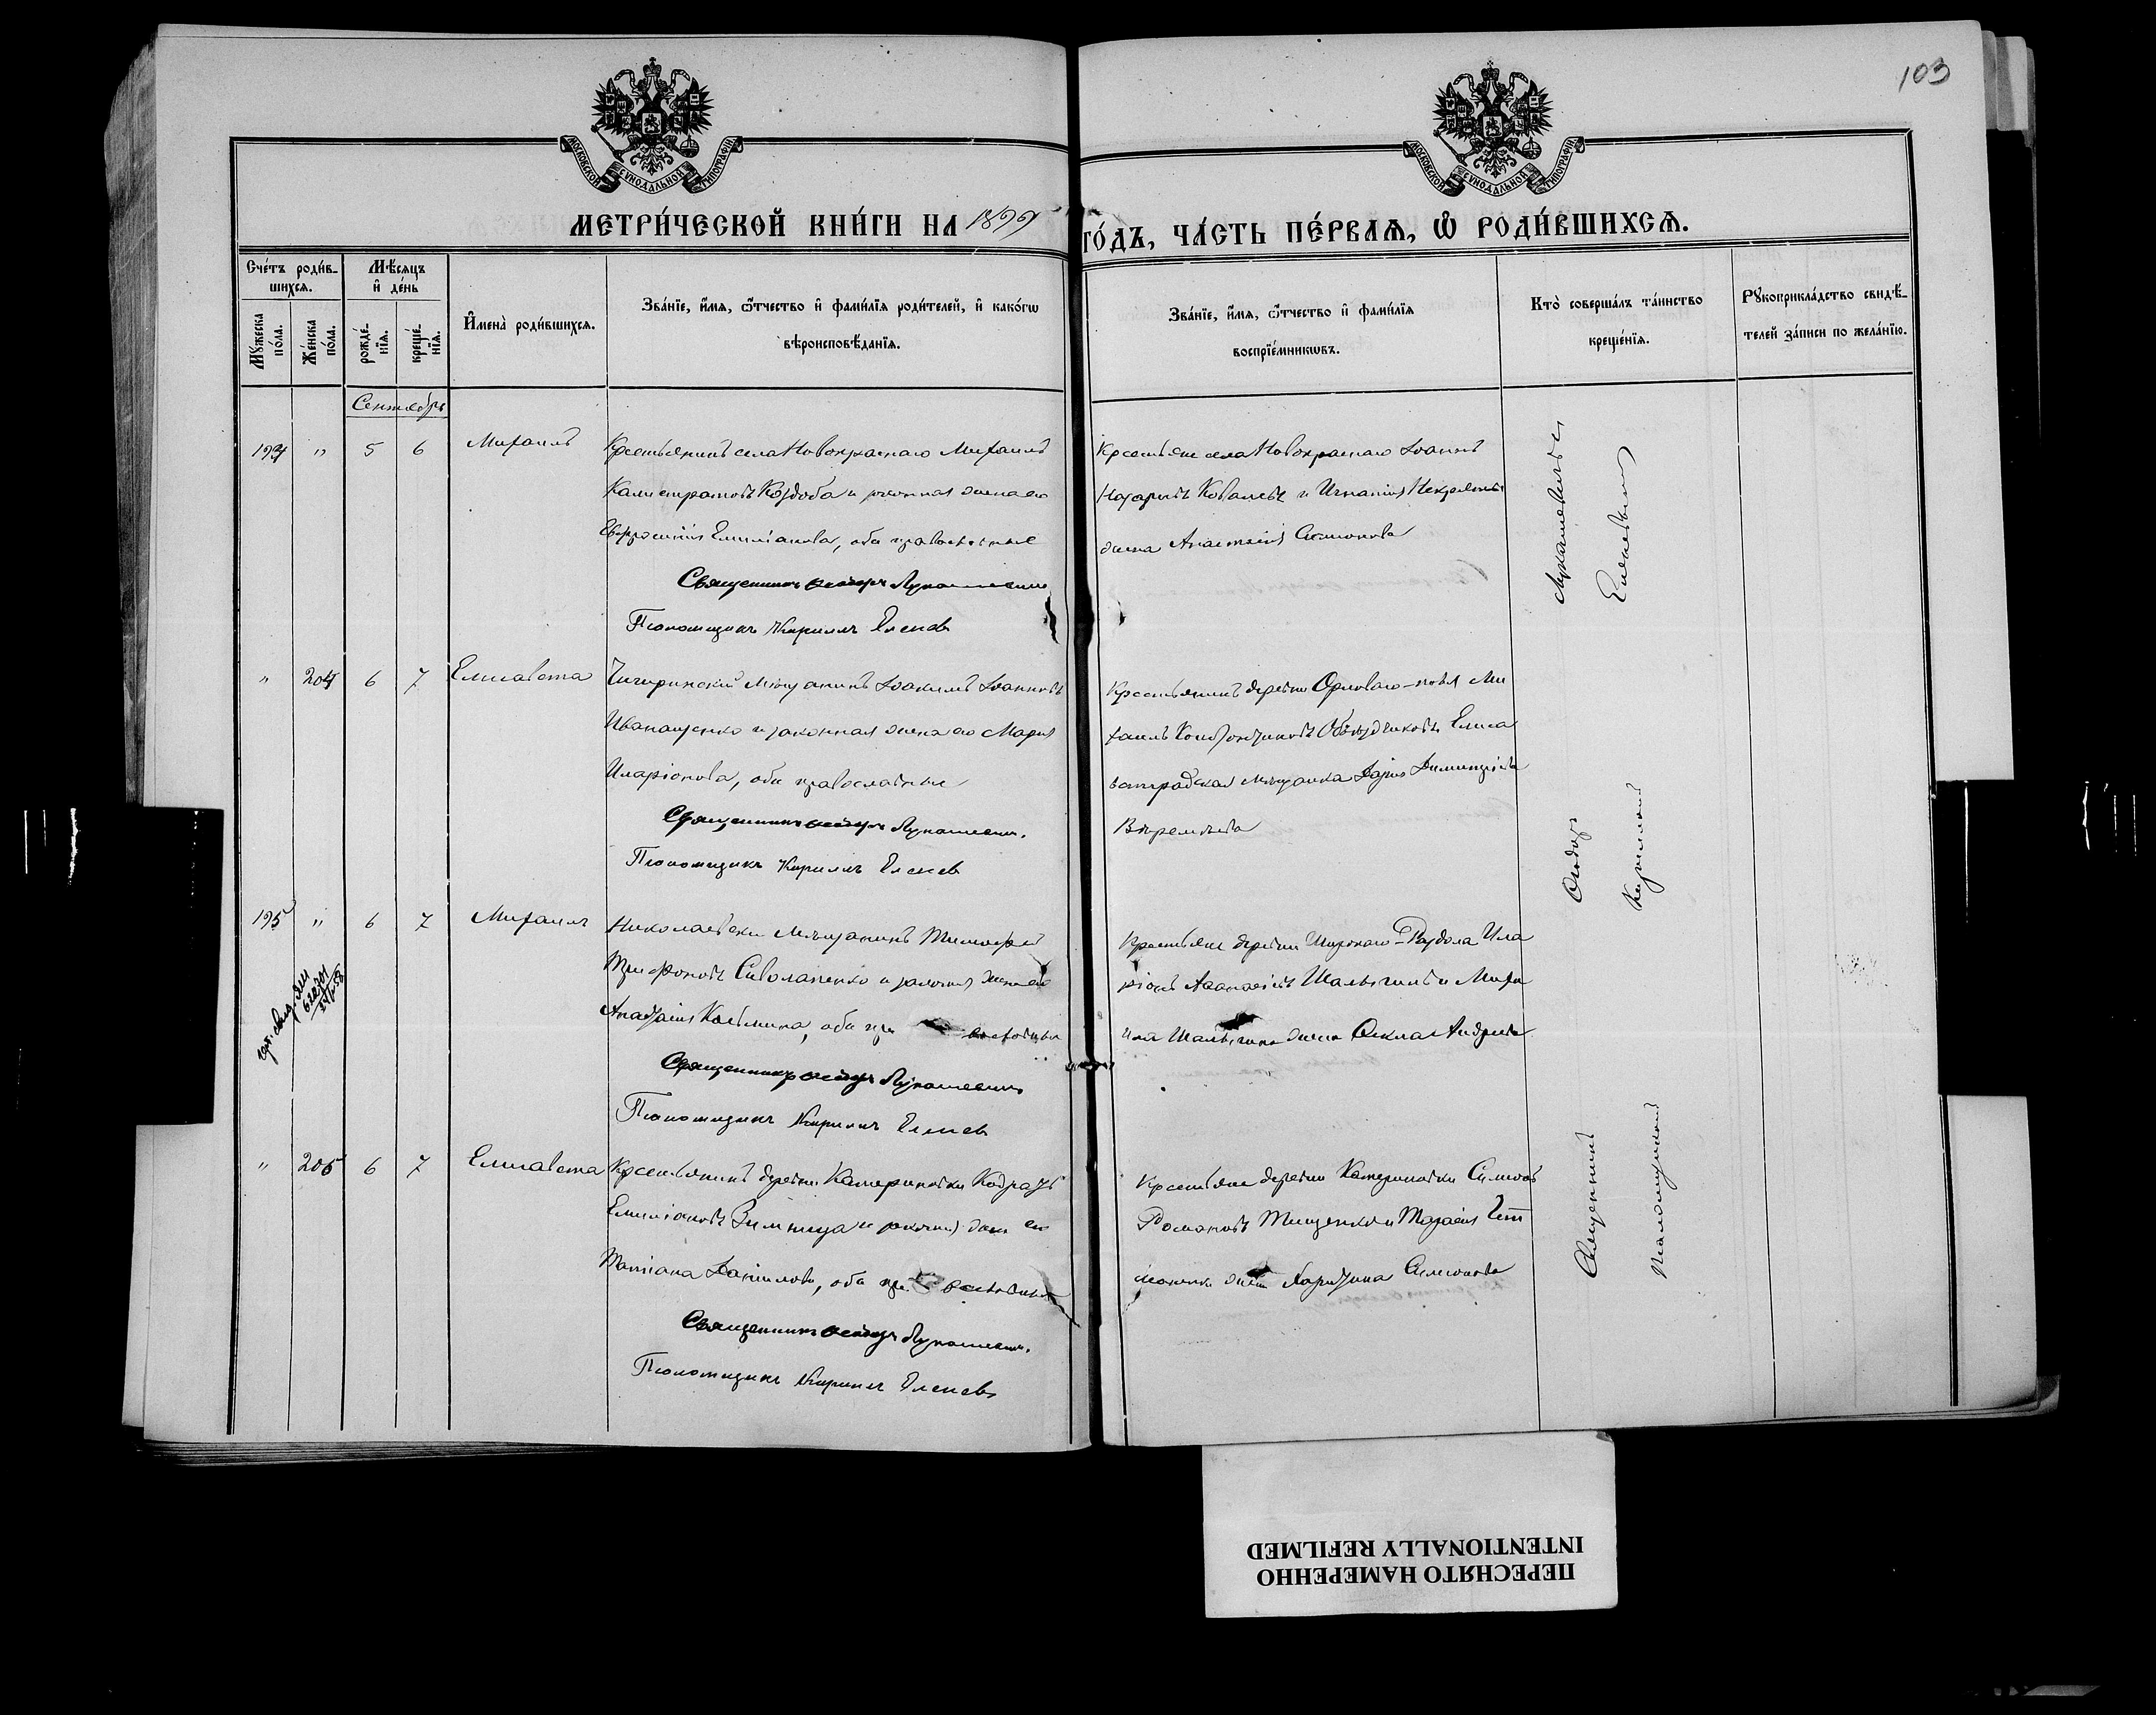 103
МОСКОВСКОЙ СѴНОДАЛЬНОЙ ТИПОГРАФІИ
МОСКОВСКОЙ СѴНОДАЛЬНОЙ ТИПОГРАФІИ
МЕТРИ́ЧЕСКОЙ КНИ́ГИ НА 1899 ГО́ДЪ, ЧА́СТЬ ПЕ́РВАѦ, Ѽ РОДИ́ВШИХСѦ.
Сче́тъ роди́вшихсѧ.
Мꙋ́жеска по́ла.
Же́нска по́ла.
Мѣ́сѧцъ и҆ де́нь
рожде́нїѧ.
креще́нїѧ.
И҆мена̀ роди́вшихсѧ.
Зва́нїе, и҆́мѧ, ѻ҆́тчество и҆ фами́лїѧ роди́телей, и҆ како́гѡ
вѣроисповѣ́данїѧ.
Зва́нїе, и҆́мѧ, ѻ҆́тчество и҆ фами́лїѧ
воспрїе́мникѡвъ.
Кто̀ соверша́лъ та́инство
креще́нїѧ.
Рꙋкоприкла́дство свидѣ́-
телей за́писи по жела́нїю.
Сентябрь
194 " 5 6 Михаилъ
Крестьянинъ села Новокраснаго Михаилъ
Калистратовъ Коздоба и законная жена его
Евфросинія Емиліанова, оба православные
Священникъ Ѳеодоръ Лукашевичъ
Псаломщикъ Кириллъ Еленевъ
Крестьяне села Новокраснаго Іоаннъ
Назаріевъ Ковалевъ и Игнатія
жена Анастасія Симонова
" 204 6 7 Елисавета
Чигиринскій мѣщанинъ Іоакимъ Іоанновъ
Иванащенко и законная жена его Марія
Иларіонова, оба православные
Священникъ Ѳеодоръ Лукашевичъ.
Псаломщикъ Кириллъ Еленевъ
Крестьянинъ деревни Орловаго-поля Ми
хаилъ Объездчиковъ, Елиса
ветградская мѣщанка Дарія Димитріева
Веремѣева
195 " 6 7 Михаилъ
Николаевскій мѣщанинъ Тимоѳей
Трифоновъ Сиволапенко и законная жена его
Анастасія Козьмина, оба православные
Священникъ Ѳеодоръ Лукашевичъ
Псаломщикъ Кириллъ Еленевъ
Крестьяне деревни Широкаго-Раздола Ила
ріонъ Аѳанасіевъ Шалыгинъ и Миха
ила Шалыгина жена Ѳекла Андреева
" 205 6 7 Елисавета
Крестьянинъ деревни Катериновки Кодратъ
Емиліановъ Зимница и законная жена его
Татіана Данилова, оба православные
Священникъ Ѳеодоръ Лукашевичъ.
Псаломщикъ Кириллъ Еленевъ
Крестьяне деревни Катериновки Симеонъ
Романовъ Тищенко и Тарасія
жена Харитина Симеонова
Священникъ Ѳеодоръ Лукашевичъ
Псаломщикъ Кириллъ Еленевъ
ПЕРЕСНЯТО НАМЕРЕННО
INTENTIONALLY REFILMED